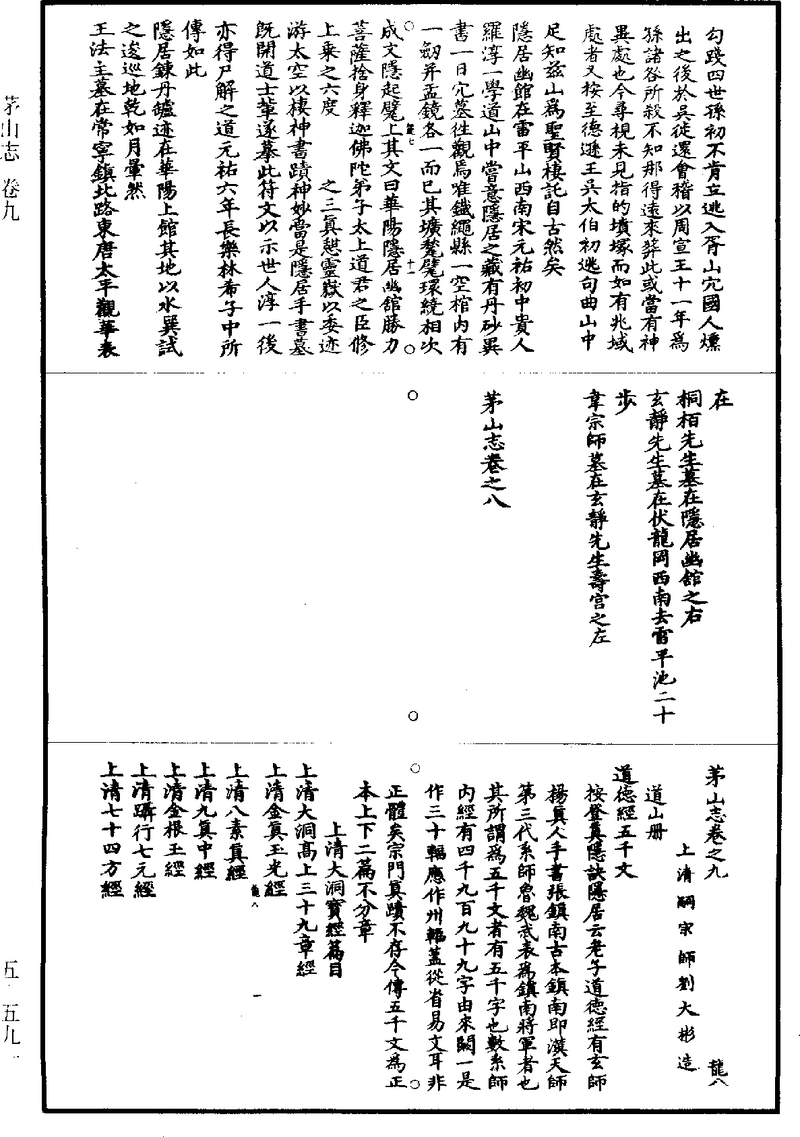 茅山志 卷九
勾踐四世孫初不肯立逃入胥山穴國人燻
出之後於吳徙還會稽以周宣王十一年為
孫諸咎所殺不知那得遠來葬此或當有神
異處也今尋視未見指的墳塚而如有兆域
處者又按至德遜王吳太伯初逃句曲山中
足知茲山為聖賢棲託自古然矣
隱居幽館在雷平山西南宋元祐初中貴人
羅淳一學道山中當意隱居之藏有丹砂異
書一日穴墓徃觀焉唯鐵繩縣一空棺內有
一劒并盂鏡各一而已其壙甃甓環繞相次
成文隱起甓上其文曰華陽隱居幽舘勝力
菩薩捨身釋迦佛陀弟子太上道君之臣修
上乘之六度
之三真憇靈嶽以委迹
游太空以棲神書蹟神妙當是隱居手書墓
旣開道士輩遂摹此符文以示世人淳一後
亦得尸解之道元祐六年長樂林希子中所
傳如此
隱居鍊丹罏迹在華陽上館其地以水噀試
之逡巡地乾如月暈然
王法主墓在常寧鎮北路東唐太平觀華表
在
桐栢先生墓在隱居幽舘之右
玄靜先生墓在伏龍岡西南去雷平池二十
步
韋宗師墓在玄靜先生壽宮之左
茅山志卷之八
茅山志卷之九
龍八
上清嗣宗師劉大彬造
道山冊
道德經五千文
按登真隱訣隱居云老子道德經有玄師
楊真人手書張鎮南古本鎮南即漢天師
第三代系師魯魏武表為鎮南將軍者也
其所謂為五千文者有五千字也數系師
內經有四千九百九十九字由來闕一是
作三十輻應作卅輻蓋從省易文耳非
正體矣宗門真蹟不存今傳五千文為正
本上下二篇不分章
上清大洞寶經篇目
上清大洞高上三十九章經
上清金真玉光經
上清八素真經
上清九真中經
上清金根玉經
上清躡行七元經
上清七十四方經
五·五九